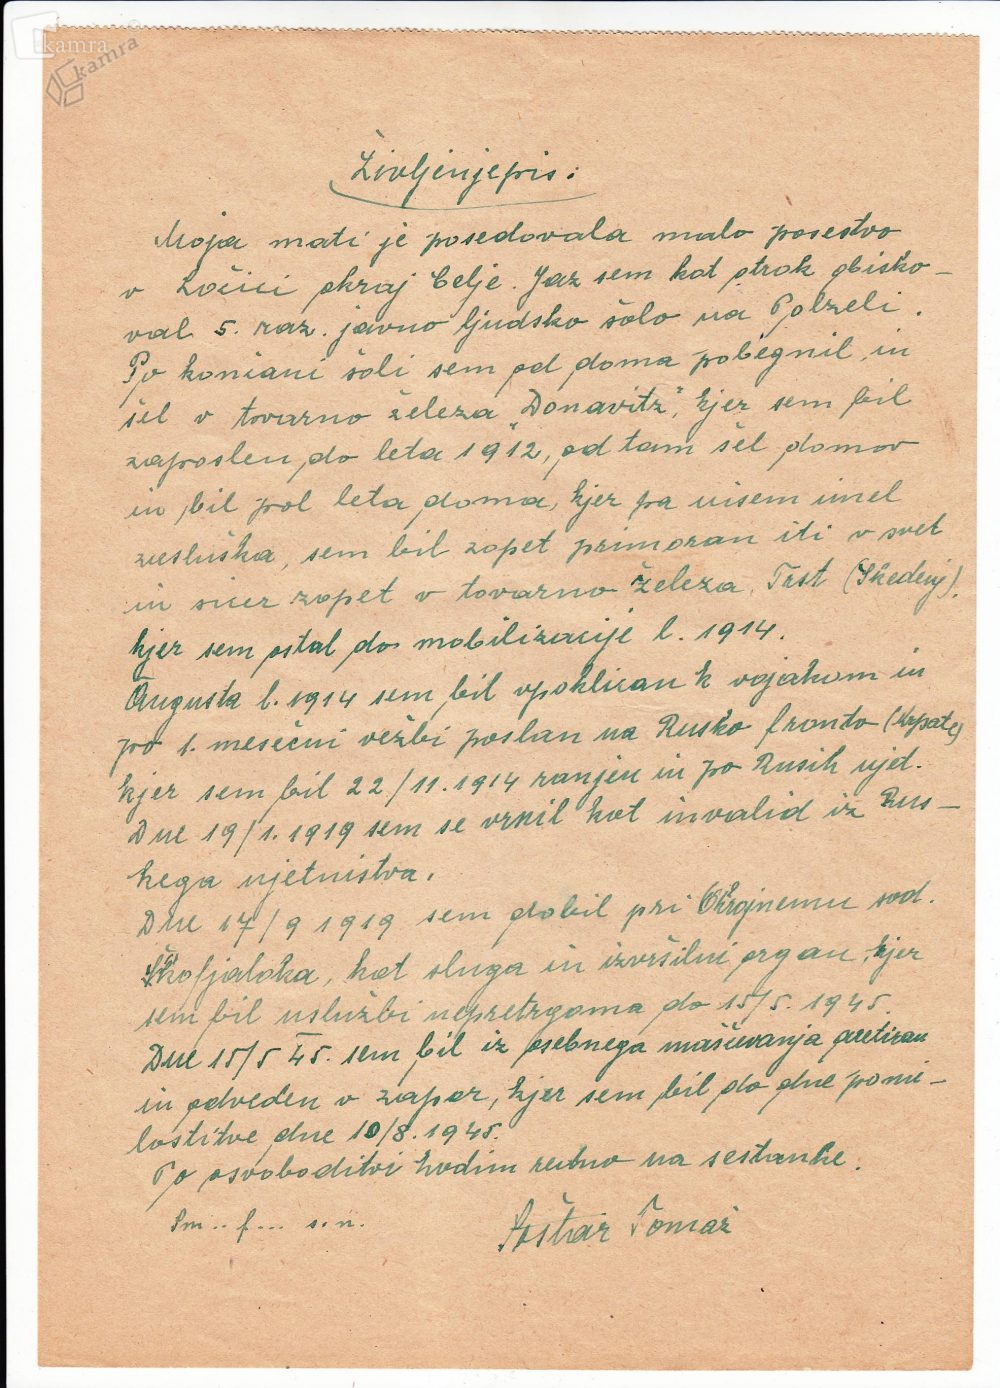 kamra
kamra
Življenjepis:
Moja mati je posedovala malo posestvo
v Ločici okraj Celje. Jaz sem kot otrok obisko-
val 5. raz. javno ljudsko šolo na Polzeli.
Po končani šoli sem od doma pobegnil in
šel v tovarno železa "Donavitz", kjer sem bil
zaposlen, do leta 1912, od tam šel domov
in bil pol leta doma, kjer pa nisem imel
zaslužka, sem bil zopet primoran iti v svet
in sicer zopet v tovarno železa, Trst (Skedenj),
kjer sem ostal do mobilizacije l. 1914.
Augusta l. 1914 sem bil vpoklican k vojakom in
po 1. mesečni vežbi poslan na Rusko fronto (Krpate)
kjer sem bil 22/11.1914 ranjen in po Rusih ujet.
Dne 19/1.1919 sem se vrnil kot invalid iz Rus-
kega ujetništva.
Dne 17/9 1919 sem dobil pri Okrajnemu sod.
Škofjaloka, kot sluga in izvršilni organ, kjer
sem bil uslužbi nepretrgoma do 15/5. 1945.
Dne 15/5 45. sem bil iz osebnega maščevanja aretiran
in odveden v zapor, kjer sem bil do dne pomi-
lostitve dne 10/8. 1945.
Po osvoboditvi hodim redno na sestanke.
Sm.. f... s. n.
Šoštar Tomaž